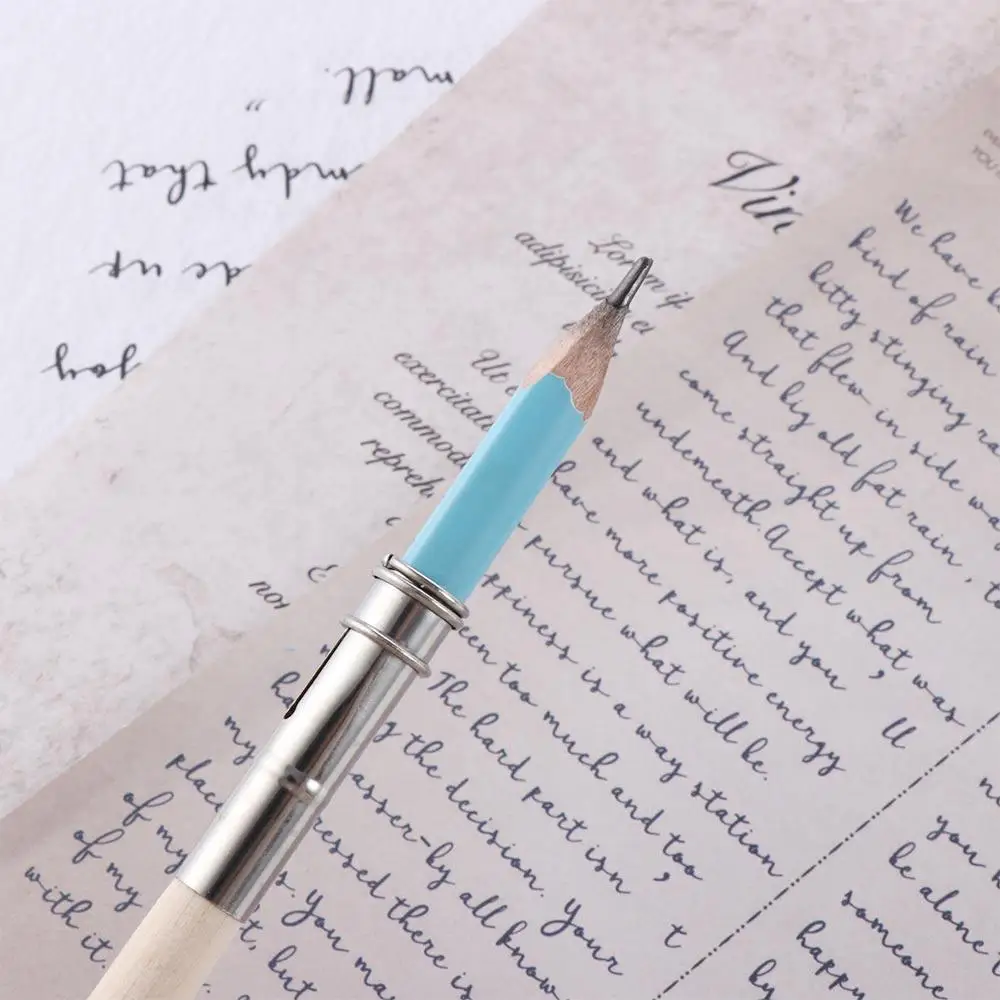 mall.
"
mdy that
de up
joy
Vin
Lorem i
adipisici
Ut e
exercitat
commod
repreh
non
We have
kind of rain
bitty stinging ra
that flew in side wa
And big old fat rain
come straight up from
underneath. Accept what was
and what is, and you'll
have more positive energy
pursue what will be.
ppiness is a way station
een too much and too
The hard part isn't
g the decision. Your
asser-by all know
ressed there is
s. You ma
t, but
ha
my
place
of my
of my
with it.
you n
be alone
someone
happy
by
YOU